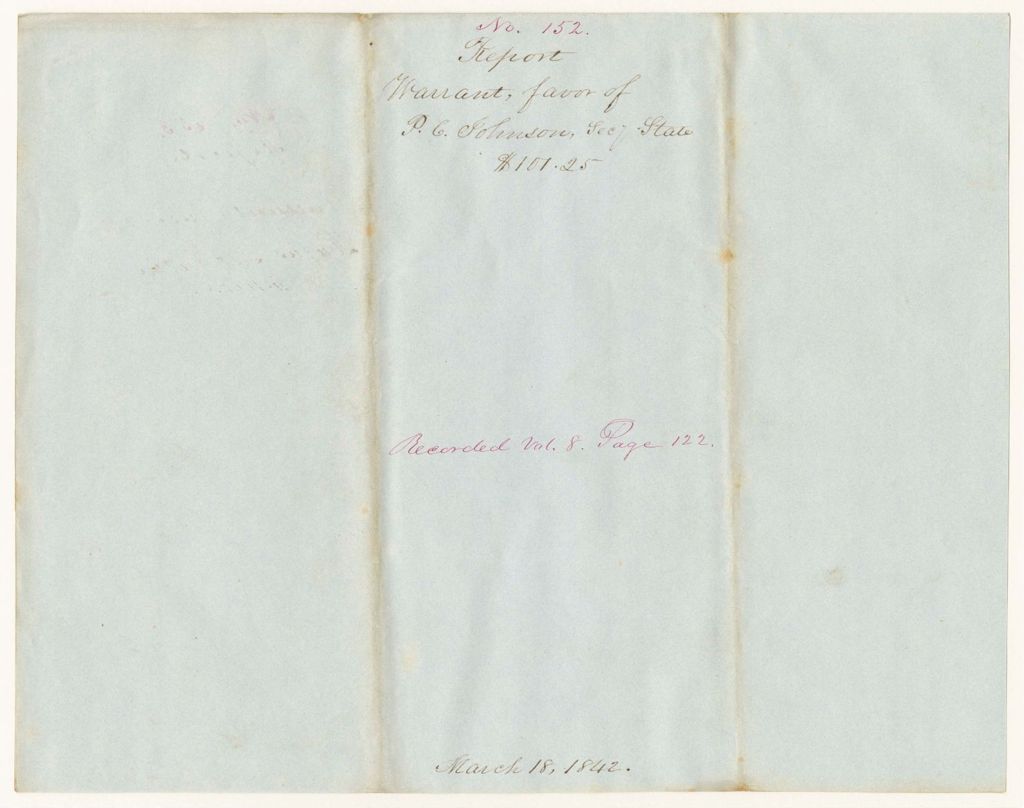 No. 152.
Report
Warrant, favor of
P. C. Johnson, Secy State
$101.25
Recorded Vol. 8. Page 122.
March 18, 1842.